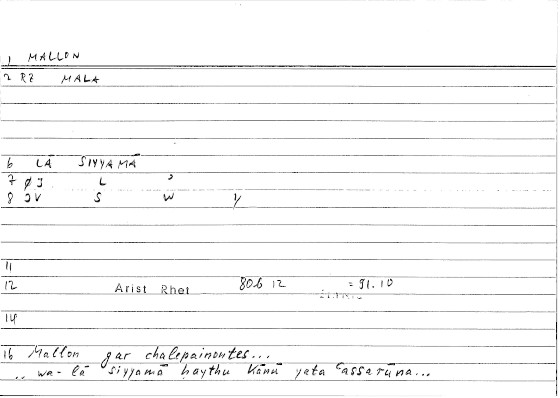 1 MALLON
2 RZ MALA
6 LĀ SIYYAMĀ
7 ØJ L ʾ
8 JV S W Y
11
12 Arist Rhet 80b 12 = 91.10
14
16 Mallon gar chalepainontes...
wa-lā siyyamā ḥaythu kānū yataʿassarūna...